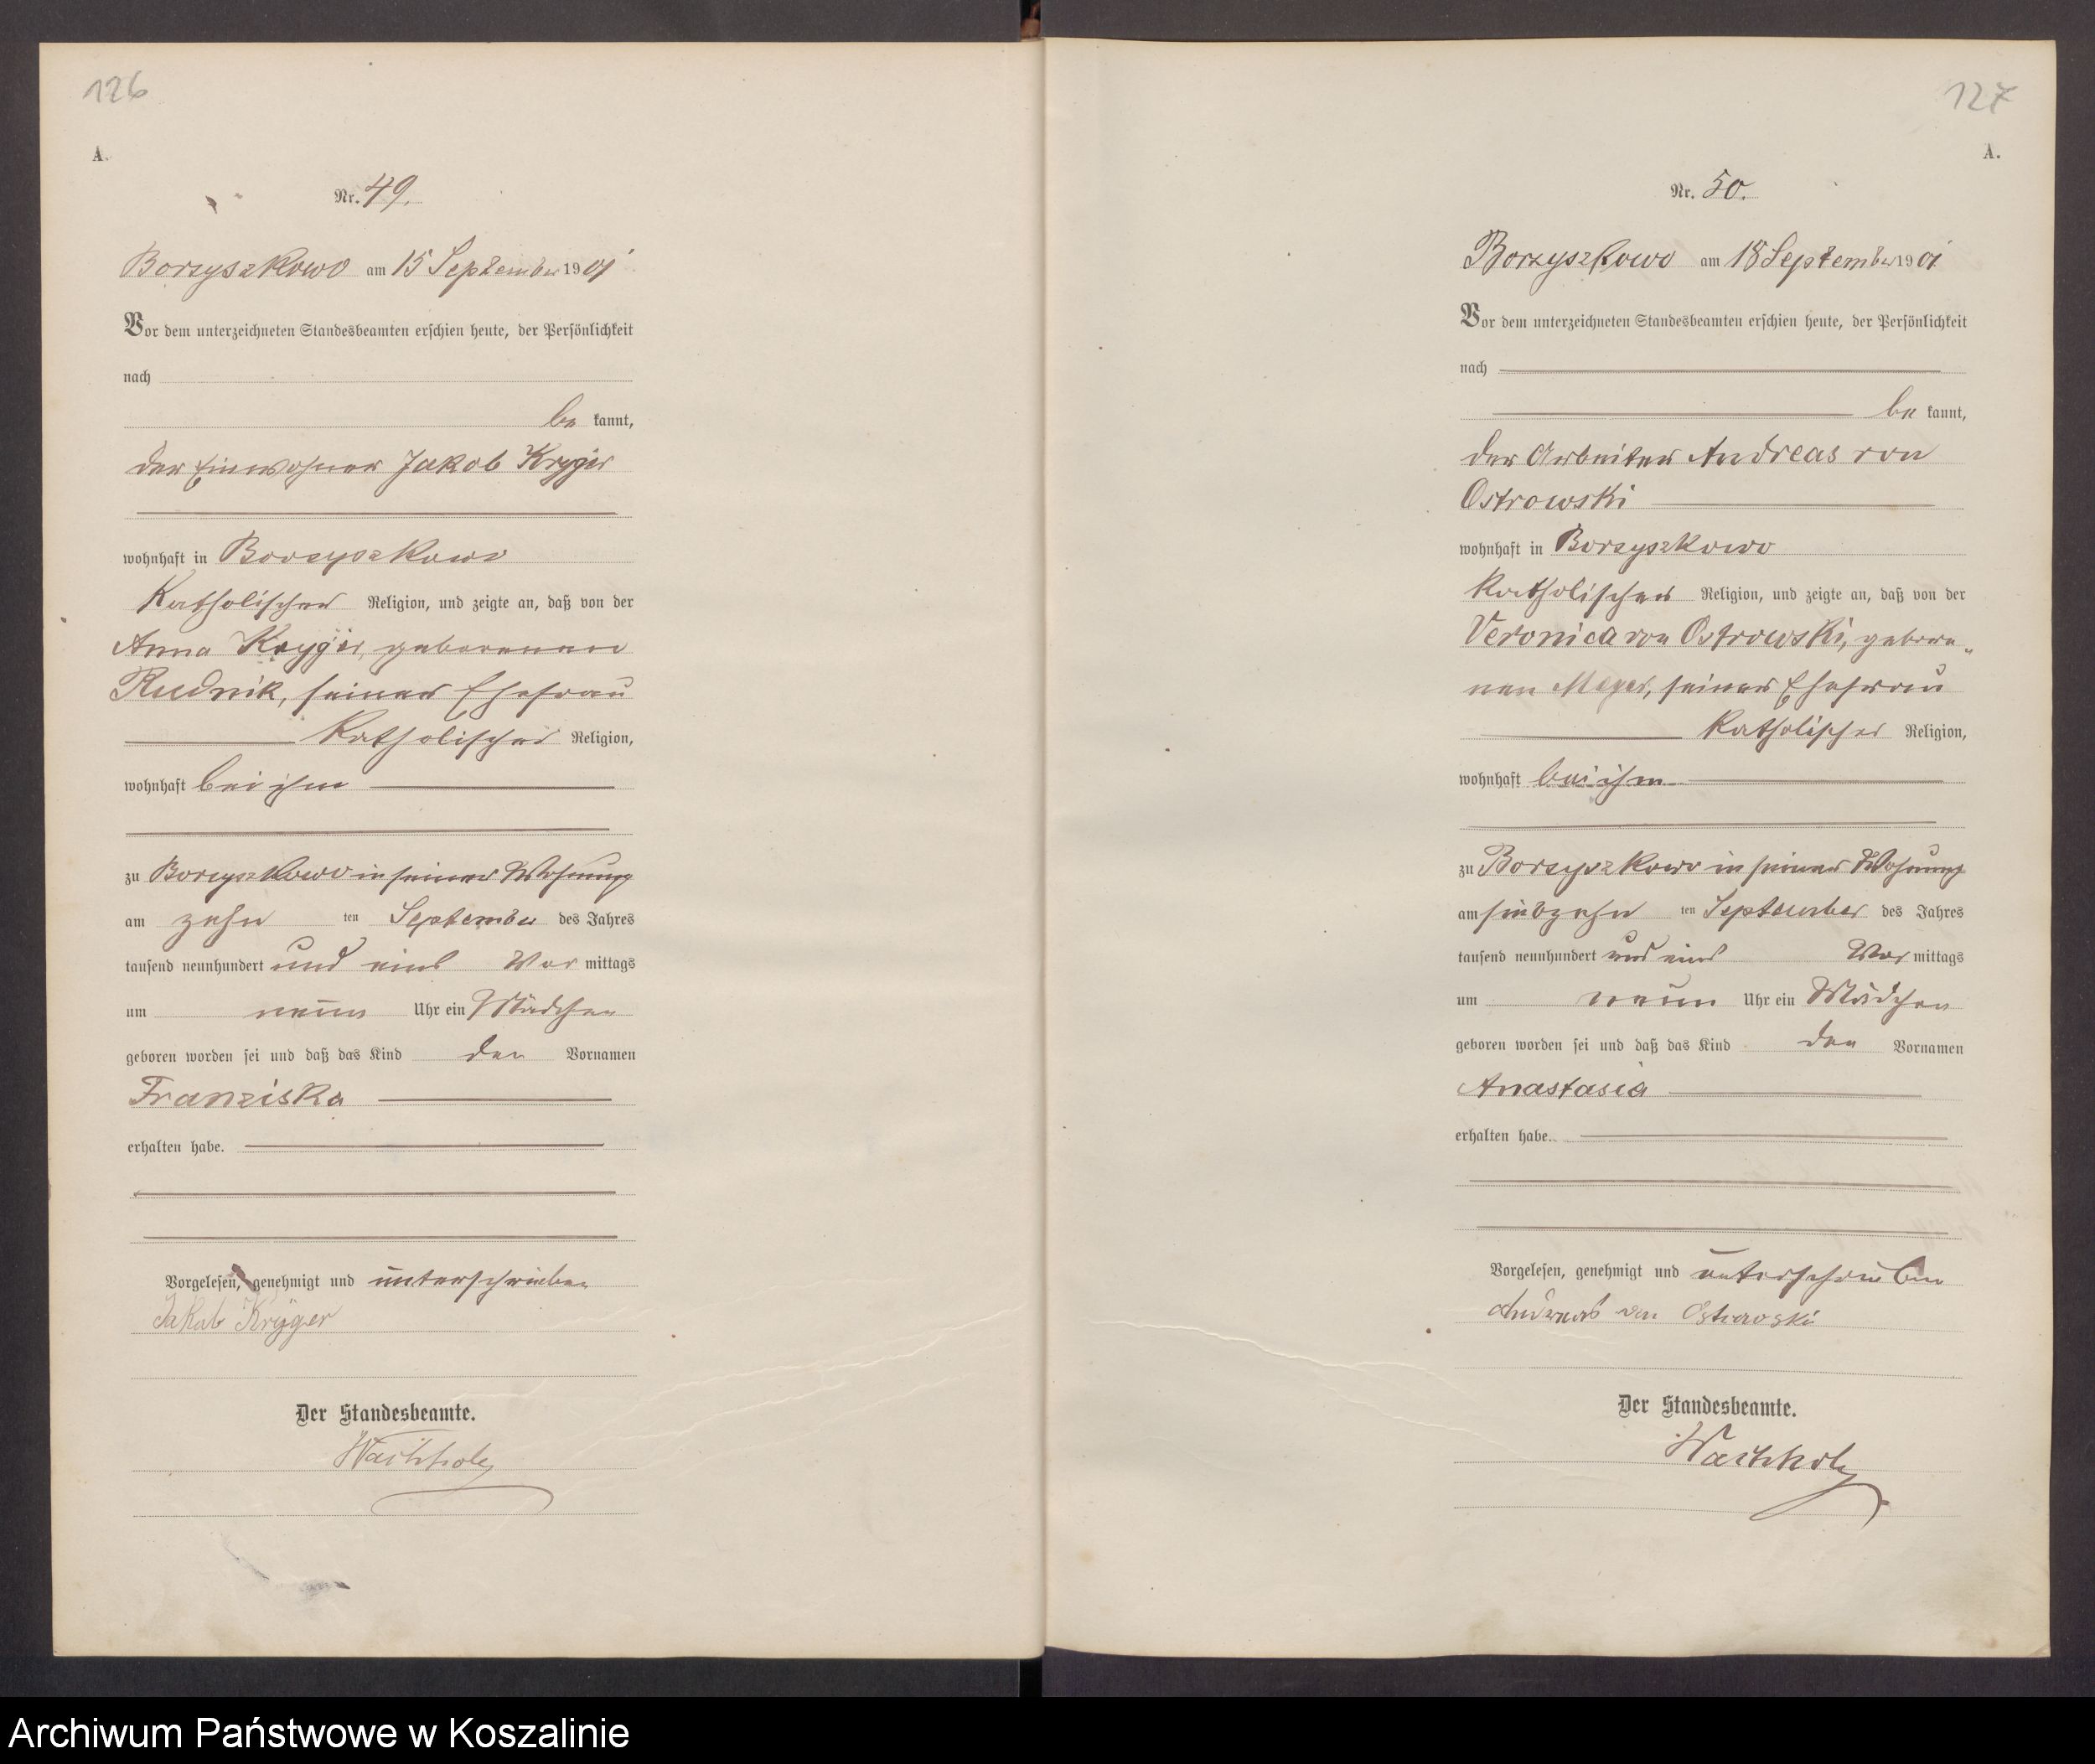 126
A.
Nr. 49.
Borzyszkowo am 15 September 1901
Vor dem unterzeichneten Standesbeamten erschien heute, der Persönlichkeit
nach
be kannt,
der Einwohner Jakob Kryger
wohnhaft in Borzyszkowo
Katholischer Religion, und zeigte an, daß von der
Anna Kryger, geborenen
Rudnik, seiner Ehefrau
Katholischer Religion,
wohnhaft bei ihm
zu Borzyszkowo in seiner Wohnung
am zehn ten September des Jahres
tausend neunhundert und eins Vor mittags
um neun Uhr ein Mädchen
geboren worden sei und daß das Kind den Vornamen
Franziska
erhalten habe.
Vorgelesen, genehmigt und unterschrieben
Jakob Kryger
Der Standesbeamte.
127
A.
Nr. 50.
Borzyszkowo am 18 September 1901
Vor dem unterzeichneten Standesbeamten erschien heute, der Persönlichkeit
nach
be kannt,
der Arbeiter Andreas von
Ostrowski
wohnhaft in Borzyszkowo
Katholischer Religion, und zeigte an, daß von der
Veronica von Ostrowski, gebore„
nen Meyer, seiner Ehefrau
Katholischer Religion,
wohnhaft bei ihm
zu Borzyszkowo in seiner Wohnung
am siebzehn ten September des Jahres
tausend neunhundert und eins Vor mittags
um neun Uhr ein Mädchen
geboren worden sei und daß das Kind den Vornamen
Anastasia
erhalten habe.
Vorgelesen, genehmigt und unterschrieben
Andreas von Ostrowski
Der Standesbeamte.
Archiwum Państwowe w Koszalinie